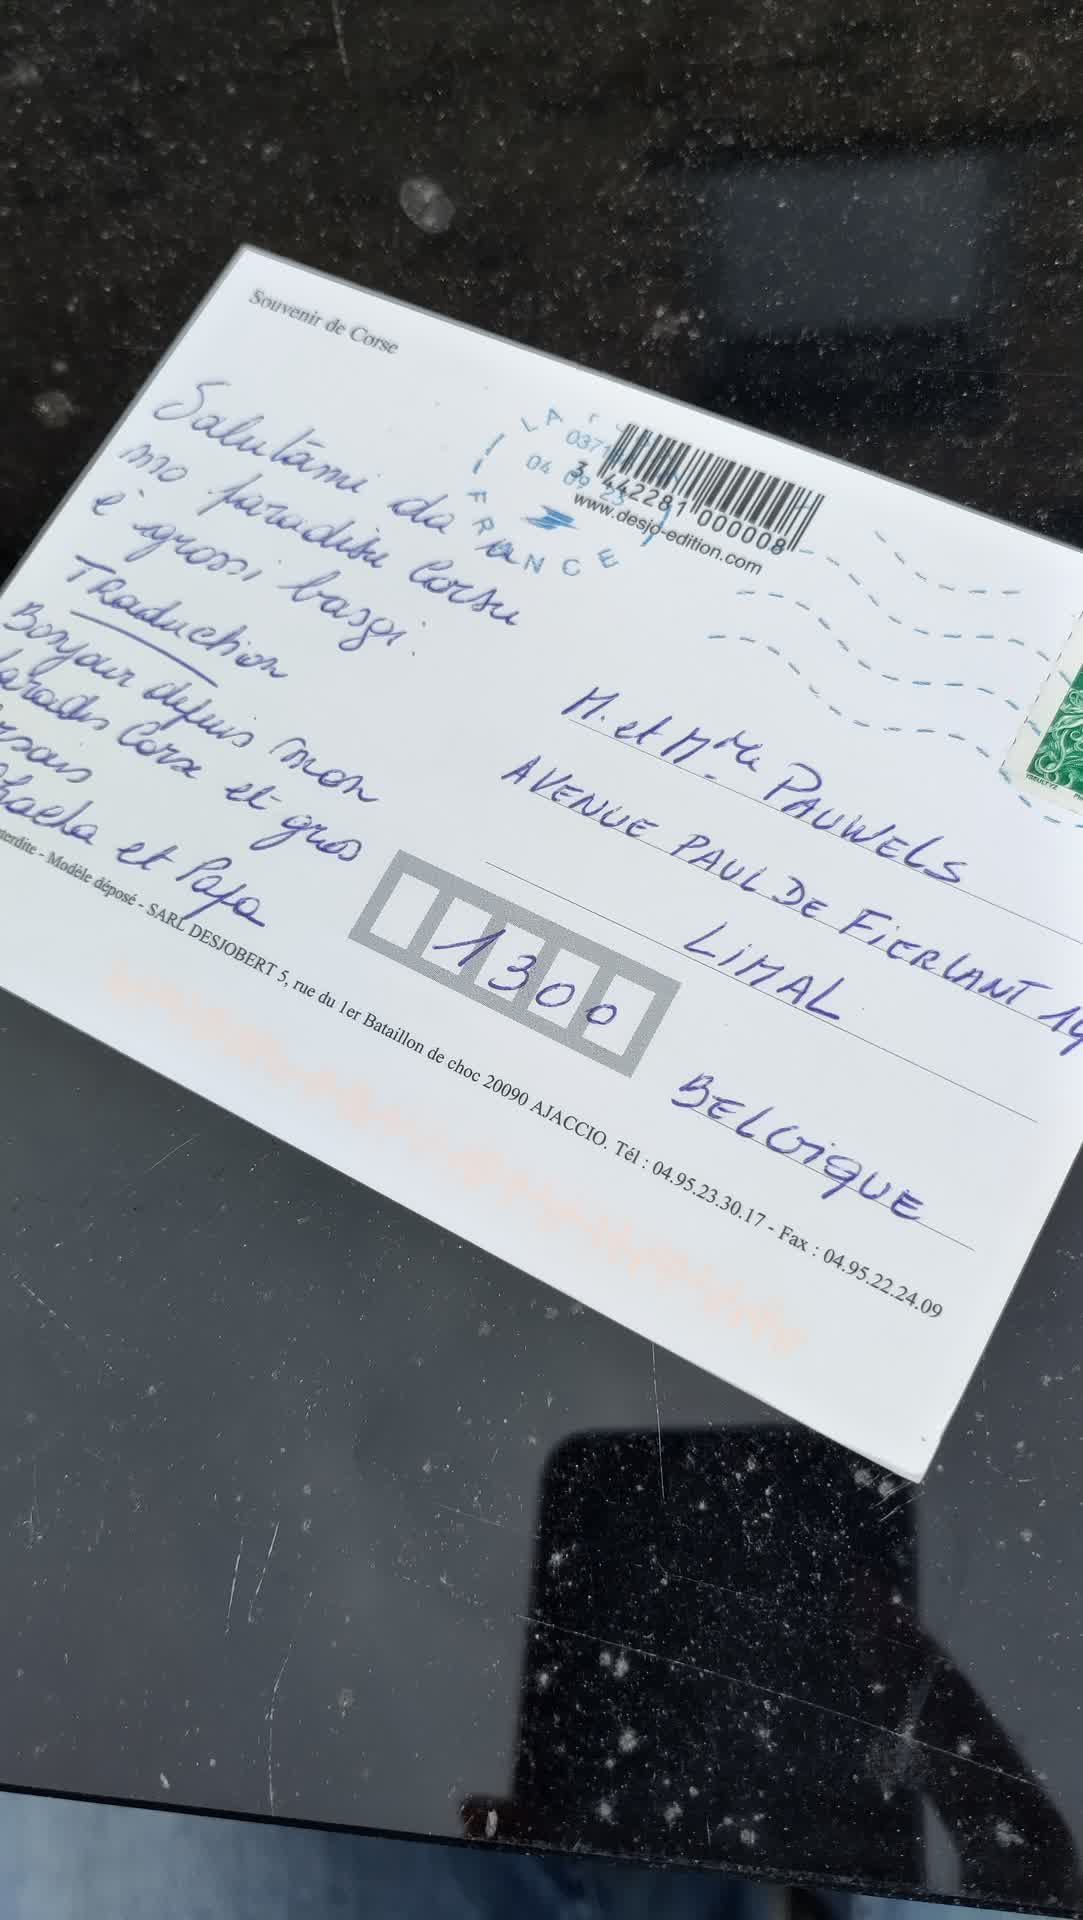 Souvenir de Corse
Salutāmi da u
mo paradisu Corsu
è grossi basgi.
TRaduction
Bonjour depuis mon
Paradis Corse et gros
et Papa
LA
0371
04 09 23
FRANCE
3 442281 000008
www.desjo-edition.com
M. et Mme PAUWELS
AVENUE PAUL DE FIERLANT
LIMAL
1300
BELGIQUE
Modèle déposé - SARL DESJOBERT 5, rue du 1er Bataillon de choc 20090 AJACCIO. Tél : 04.95.23.30.17 - Fax : 04.95.22.24.09
YSEULTYZ